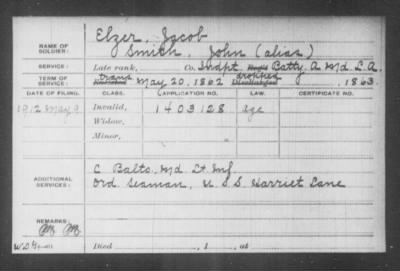 NAME OF SOLDIER: Elzer, Jacob
Smith, John (alias)
SERVICE: Late rank, Co. Indpt Batty. A Md L.A.
TERM OF SERVICE: trans May 20, 1862 dropped , 1863
DATE OF FILING. CLASS. APPLICATION NO. LAW. CERTIFICATE NO.
1912 May 9 Invalid, 1403128 age
Widow,
Minor,
ADDITIONAL SERVICES: C Balto. Md Lt Inf.
Ord Seaman, U.S.S. Harriet Lane
REMARKS:
Died , 1 , at